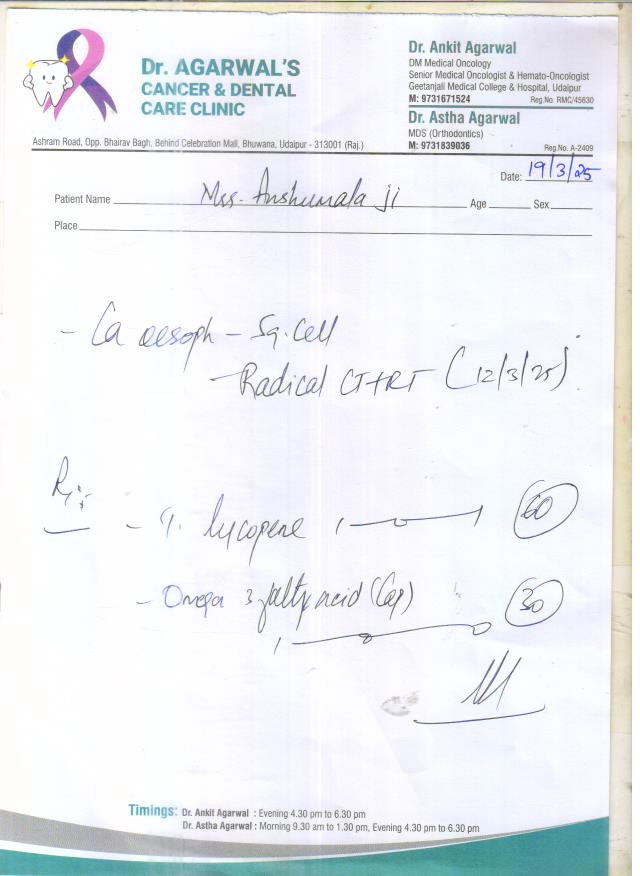 Dr. AGARWAL'S
CANCER & DENTAL
CARE CLINIC
Dr. Ankit Agarwal
DM Medical Oncology
Senior Medical Oncologist & Hemato-Oncologist
Geetanjali Medical College & Hospital, Udaipur
M: 9731671524 Reg.No. RMC/45630
Dr. Astha Agarwal
MDS (Orthodontics)
M: 9731839036 Reg.No. A-2409
Ashram Road, Opp. Bhairav Bagh, Behind Celebration Mall, Bhuwana, Udaipur - 313001 (Raj.)
Date: 19/3/25
Patient Name Mrs. Anshumala ji Age Sex
Place
- Ca oesoph - Sq. Cell
- Radical CT+RT (12/3/25)
Rx
- T. lycopene 1-0-1 60
- Omega 3 fatty acid (Cap) 30
1-0-0
Timings: Dr. Ankit Agarwal : Evening 4.30 pm to 6.30 pm
Dr. Astha Agarwal : Morning 9.30 am to 1.30 pm, Evening 4.30 pm to 6.30 pm